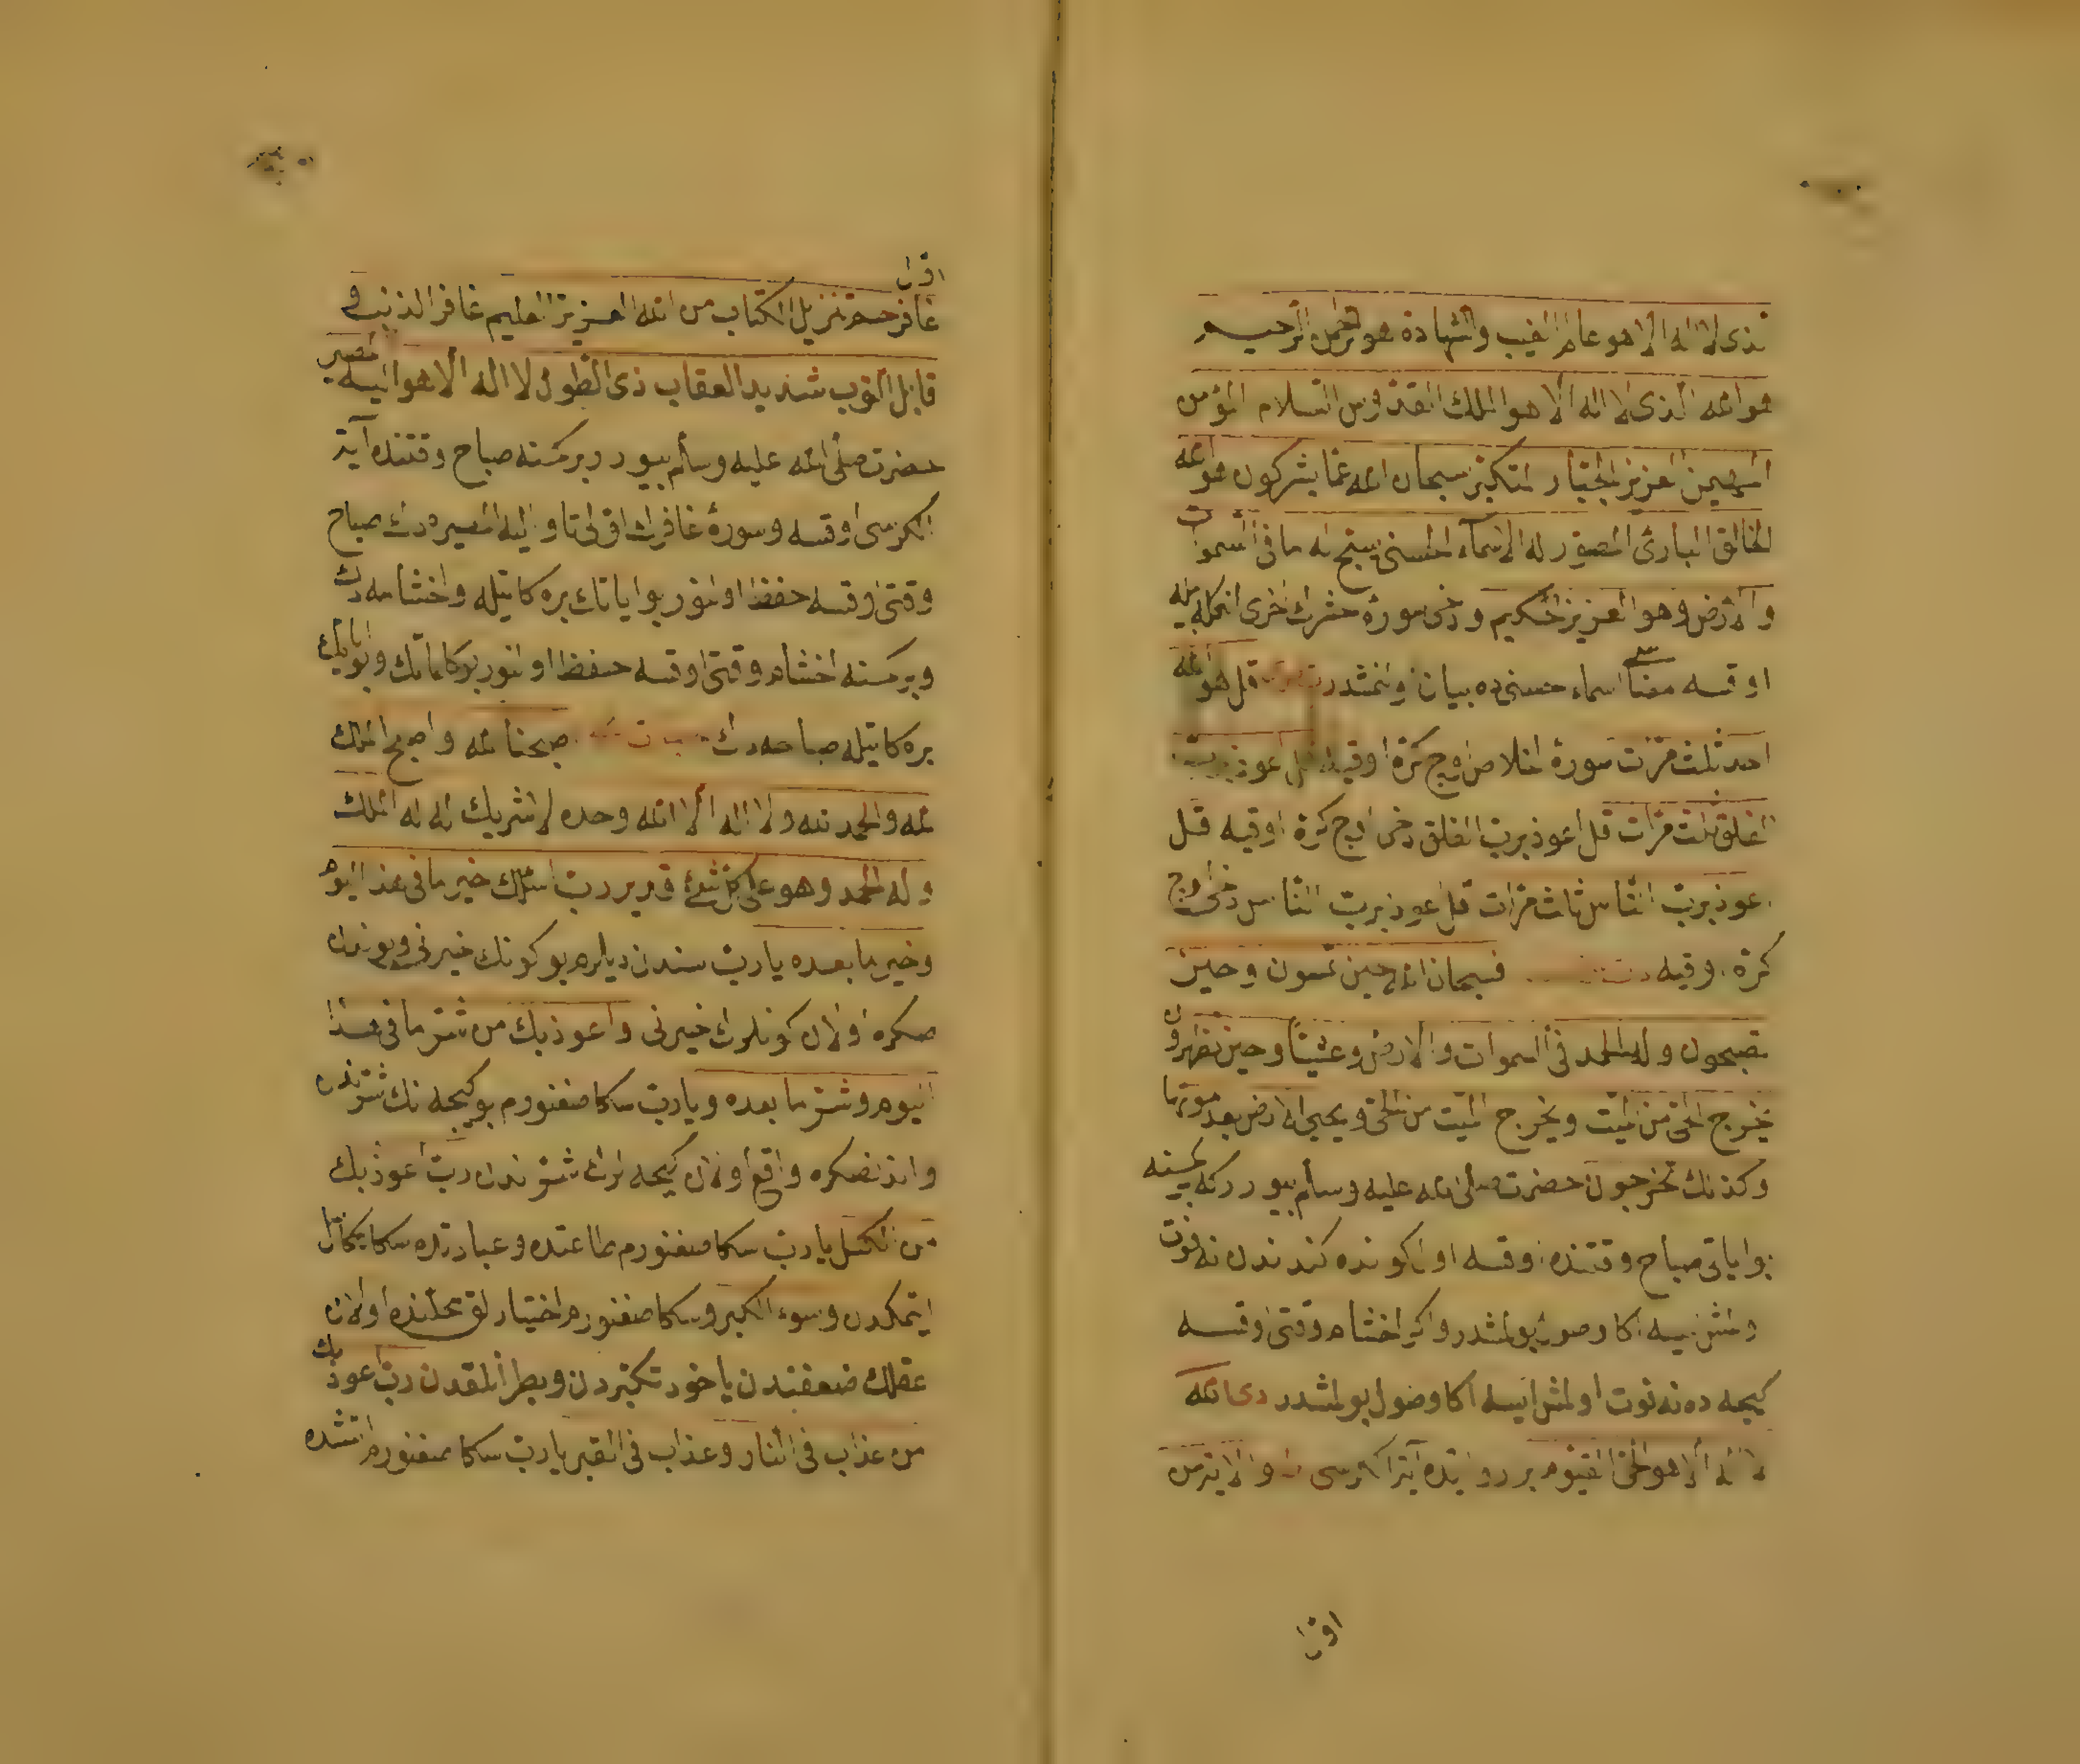 لذى لا اله الا هو عالم الغيب والشهادة هو الرحمن الرحيم
هو الله الذى لا اله الا هو الملك القدوس السلام المؤمن
المهيمن العزيز الجبار المتكبر سبحان الله عما يشركون هو الله
الخالق البارئ المصور له الاسماء الحسنى يسبح له ما فى السموات
والارض وهو العزيز الحكيم ودخى سورۀ حشرك اخرى
اوقسه معنا سى اسماء حسنى ده بيان اولنمشدر قل هو الله
احد ثلث مرات سورۀ اخلاص اوچ كره اوقيه قل اعوذ برب
الفلق ثلث مرات قل اعوذ برب الفلق دخى اوچ كره اوقيه قل
اعوذ برب الناس ثلث مرات قل اعوذ برب الناس دخى اوچ
كره اوقيه فسبحان الله حين تمسون وحين
تصبحون وله الحمد فى السموات والارض وعشيا وحين تظهرون
يخرج الحى من الميت ويخرج الميت من الحى ويحيى الارض بعد موتها
وكذلك تخرجون حضرت صلى الله عليه وسلم بيورر كه بر كمسنه
بو اياتى صباح وقتنده اوقسه اول كونده كندندن نه فوت
اولمش ايسه اكا وصول بولمشدر واكر اخشام وقتى اوقسه
كيجه ده نه فوت اولمش ايسه اكا وصول بولمشدر دى الله
لا اله الا هو الحى القيوم بر روايتده آية الكرسى والايتين من
اول
اول
غافر حم تنزيل الكتاب من الله العزيز العليم غافر الذنب و
قابل التوب شديد العقاب ذى الطول لا اله الا هو اليه المصير
حضرت صلى الله عليه وسلم بيورر بر كمسنه صباح وقتنده آية
الكرسى اوقسه وسورۀ غافرك اولى تا واليه المصيره دك صباح
وقتى اوقسه حفظ اولنور بو اياتك بركاتيله واخشامه دك
وبر كمسنه اخشام وقتى اوقسه حفظ اولنور بو كلماتك وبو اياتك
بركاتيله صباحه دك صبحنا لله واصبح الملك
لله والحمد لله ولا اله الا الله وحده لا شريك له له الملك
وله الحمد وهو على كل شئ قدير رب اسئلك خير ما فى هذا اليوم
وخير ما بعده يا رب سندن ديلرم بو كونك خيرنى وبوندن
صكره اولان كونلرك خيرنى واعوذ بك من شر ما فى هذا
اليوم وشر ما بعده ويا رب سكا صغنورم بو كيجه نك شرندن
واندن صكره واقع اولان كيجه لرك شرندن رب اعوذ بك
من الكسل يا رب سكا صغنورم طاعتده وعبادتده سكا
ايتمكدن وسوء الكبر وسكا صغنورم اختيارلق محلنده اولان
عقلك ضعفندن ياخود تكبردن رب اعوذ بك
من عذاب فى النار وعذاب فى القبر يا رب سكا صغنورم اتشده